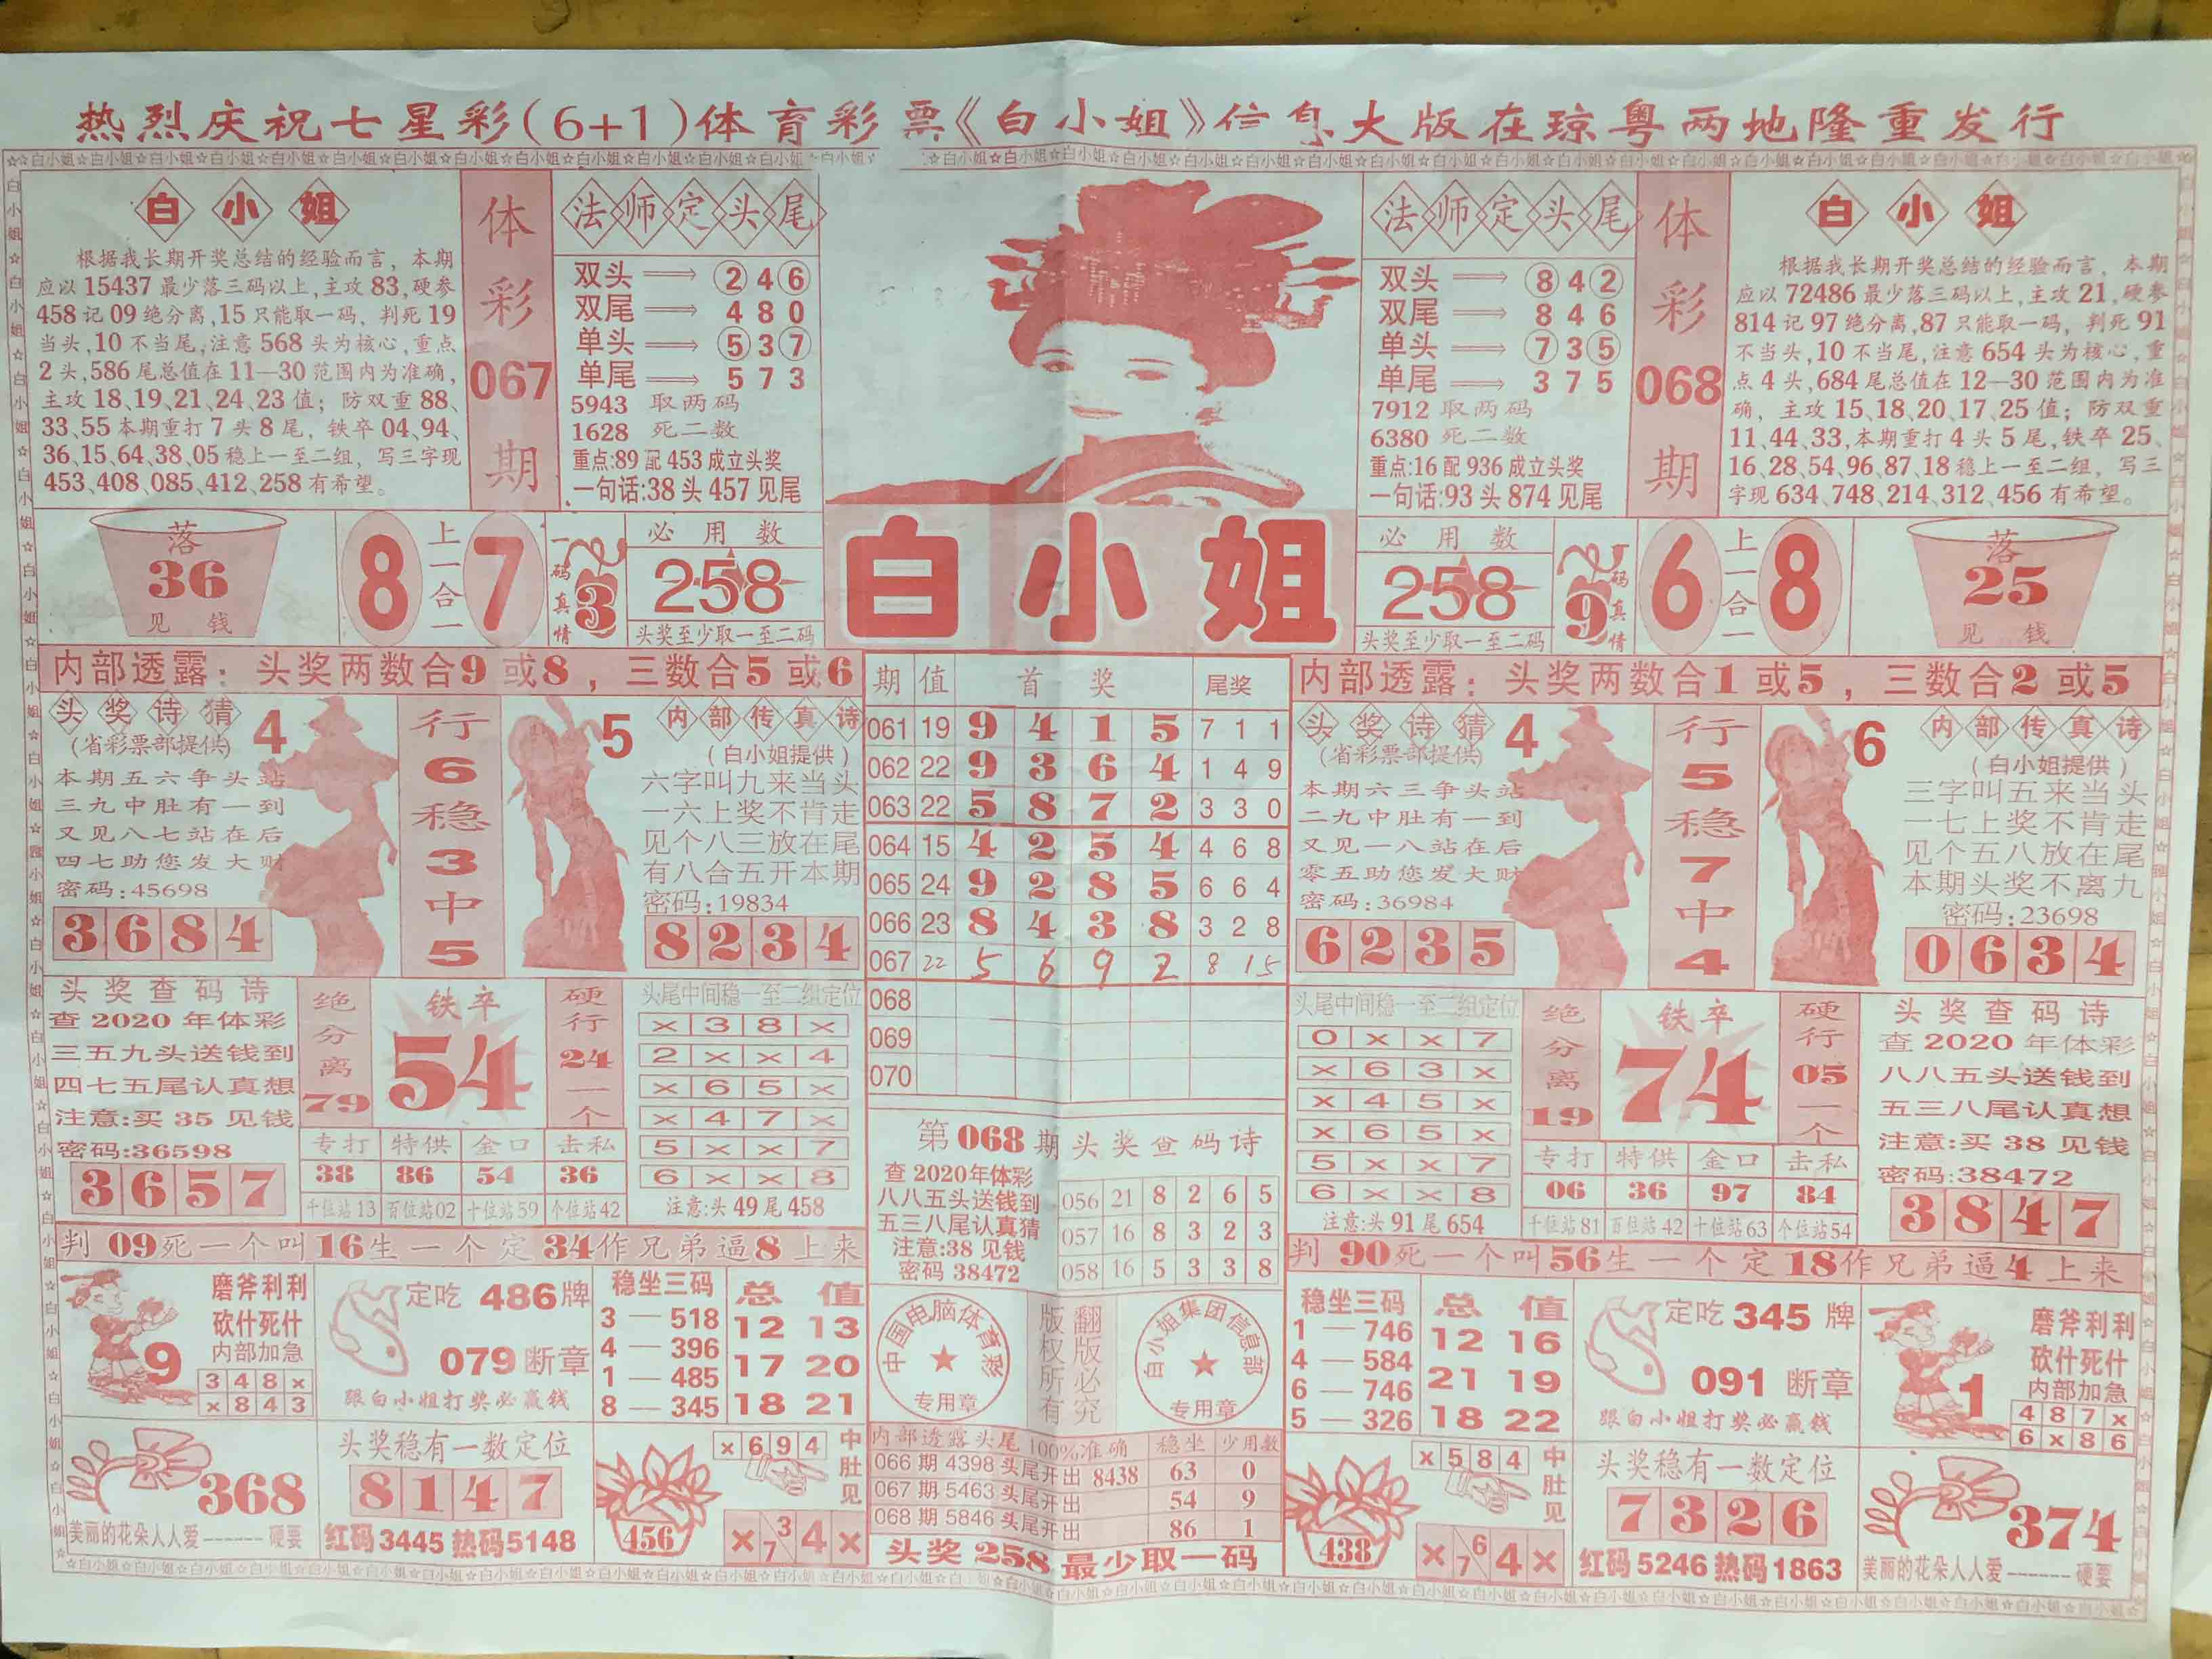 热烈庆祝七星彩(6+1)体育彩票《白小姐》信息大版在琼粤两地隆重发行
白小姐
根据我长期开奖总结的经验而言，本期
应以15437最少落三码以上,主攻83,硬参
458记09绝分离,15只能取一码，判死19
当头,10不当尾,注意568头为核心,重点
2头,586尾总值在11—30范围内为准确,
主攻18、19、21、24、23值；防双重88、
33、55本期重打7头8尾，铁卒04、94、
36、15、64、38、05稳上一至二组，写三字现
453、408、085、412、258有希望。
体彩067期
法师定头尾
双头 ②4⑥
双尾 480
单头 ⑤3⑦
单尾 573
5943 取两码
1628 死二数
重点:89配453成立头奖
一句话:38头457见尾
白小姐
法师定头尾
双头 ⑧4②
双尾 846
单头 ⑦3⑤
单尾 375
7912 取两码
6380 死二数
重点:16配936成立头奖
一句话:93头874见尾
体彩068期
白小姐
根据我长期开奖总结的经验而言，本期
应以72486最少落三码以上,主攻21,硬参
814记97绝分离,87只能取一码，判死91
不当头,10不当尾,注意654头为核心,重
点4头,684尾总值在12—30范围内为准
确，主攻15、18、20、17、25值；防双重
11、44、33,本期重打4头5尾,铁卒25、
16、28、54、96、87、18稳上一至二组，写三
字现634、748、214、312、456有希望。
落
36
见 钱
8 上一合一 7
一码真情 3
必用数
258
头奖至少取一至二码
必用数
258
头奖至少取一至二码
9 一码真情
6 上一合一 8
落
25
见 钱
内部透露：头奖两数合9或8，三数合5或6
头奖诗猜
(省彩票部提供)
4
本期五六争头站
三九中肚有一到
又见八七站在后
四七助您发大财
密码:45698
3684
行6稳3中5
5
内部传真诗
(白小姐提供)
六字叫九来当头
一六上奖不肯走
见个八三放在尾
有八合五开本期
密码:19834
8234
期 值 首奖 尾奖
061 19 9 4 1 5 7 1 1
062 22 9 3 6 4 1 4 9
063 22 5 8 7 2 3 3 0
064 15 4 2 5 4 4 6 8
065 24 9 2 8 5 6 6 4
066 23 8 4 3 8 3 2 8
067 22 5 6 9 2 8 15
068
069
070
内部透露：头奖两数合1或5，三数合2或5
头奖诗猜
(省彩票部提供)
4
本期六三争头站
二九中肚有一到
又见一八站在后
零五助您发大财
密码:36984
6235
行5稳7中4
6
内部传真诗
(白小姐提供)
三字叫五来当头
一七上奖不肯走
见个五八放在尾
本期头奖不离九
密码:23698
0634
头奖查码诗
查2020年体彩
三五九头送钱到
四七五尾认真想
注意:买35见钱
密码:36598
3657
绝分离79
铁卒
54
硬行24一个
专打 特供 金口 击私
38 86 54 36
千位站13 百位站02 十位站59 个位站42
头尾中间稳一至二组定位
×38×
2××4
×65×
×47×
5××7
6××8
注意:头49尾458
第068期头奖查码诗
查2020年体彩
八八五头送钱到
五三八尾认真猜
注意:38见钱
密码38472
056 21 8 2 6 5
057 16 8 3 2 3
058 16 5 3 3 8
头尾中间稳一至二组定位
0××7
×63×
×45×
×65×
5××7
6××8
注意:头91尾654
绝分离19
铁卒
74
硬行05一个
专打 特供 金口 击私
06 36 97 84
千位站81 百位站42 十位站63 个位站54
头奖查码诗
查2020年体彩
八八五头送钱到
五三八尾认真想
注意:买38见钱
密码:38472
3847
判09死一个叫16生一个定34作兄弟逼8上来
磨斧利利
砍什死什
内部加急
9
348×
×843
定吃486牌
079断章
跟白小姐打奖必赢钱
稳坐三码
3—518
4—396
1—485
8—345
总值
12 13
17 20
18 21
中国电脑体育彩
专用章
版权所有
翻版必究
白小姐集团信息部
专用章
判90死一个叫56生一个定18作兄弟逼4上来
稳坐三码
1—746
4—584
6—746
5—326
总值
12 16
21 19
18 22
定吃345牌
091断章
跟白小姐打奖必赢钱
磨斧利利
砍什死什
内部加急
1
487×
6×86
368
美丽的花朵人人爱------硬要
头奖稳有一数定位
8147
红码3445 热码5148
456
×694
中肚见
× 3/7 4 ×
内部透露头尾100%准确 稳坐 少用数
066期4398头尾开出8438 63 0
067期5463头尾开出 54 9
068期5846头尾开出 86 1
头奖258最少取一码
438
×584
中肚见
× 6/7 4 ×
头奖稳有一数定位
7326
红码5246 热码1863
374
美丽的花朵人人爱------硬要